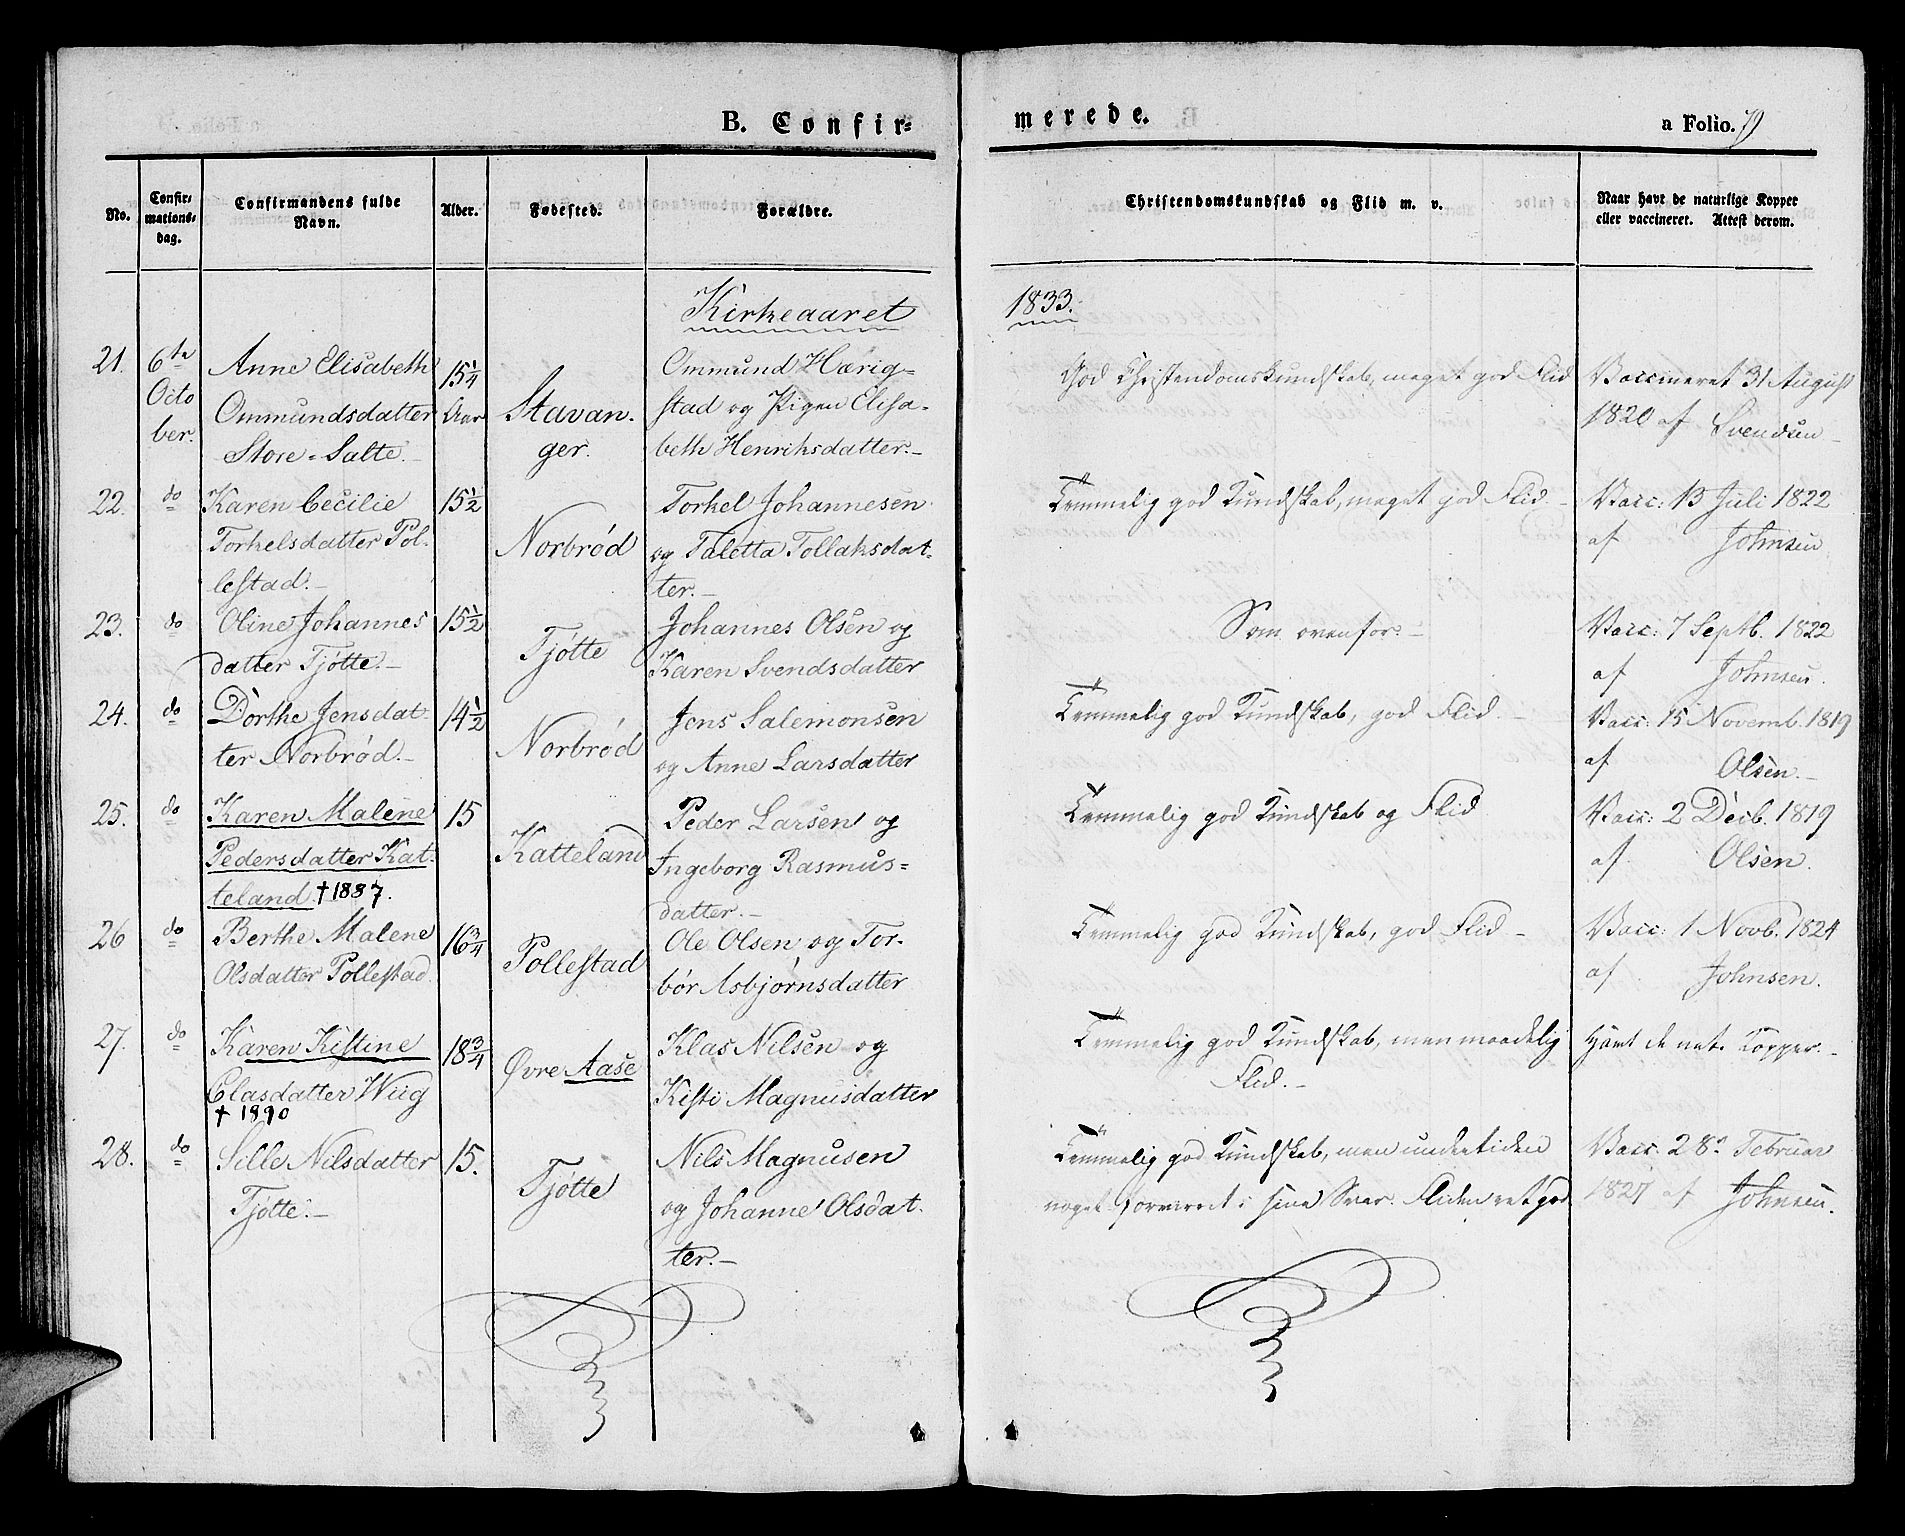 B. Confir-
merede.
a Folio. 79
No.
Confir-
mations-
dag.
Confirmandens fulde
Navn.
Alder.
Fødested.
Forældre.
Christendomskundskab og Flid m. v.
Naar havt de naturlige Kopper
eller vaccineret. Attest derom.
Kirkeaaret
1833.
21.
6te
Octo
ber.
Anne Elisabeth
Ommundsdatter
Store-Salte.-
15 1/4
Aar
Stavan-
ger.
Ommund Hærig-
stad og Pigen Elisa-
beth Henriksdatter.-
God Christendomskundskab, meget god Flid
Vaccineret 31 August
1820 af Svendsen
22.
do
Karen Cecilie
Torkelsdatter Pol-
lestad.-
15 1/2
Norbrød
Torkel Johannesen
og Taletta Tollaksdat-
ter.-
Temmelig god Kundskab, meget god Flid.-
Vacc: 13 Juli 1822
af Johnsen
23.
do
Oline Johannes
datter Tjøtte.-
15 1/2
Tjøtte
Johannes Olsen og
Karen Svendsdatter
Som ovenfor.-
Vacc: 7 Septb. 1822
af Johnsen.
24.
do
Dorthe Jensdat-
ter Norbrød.-
14 1/2
Norbrød
Jens Salemonsen
og Anne Larsdatter
Temmelig god Kundskab, god Flid.-
Vacc: 15 Novemb. 1819
af Olsen.-
25.
do
Karen Malene
Pedersdatter Kat-
teland. † 1887.
15
Katteland
Peder Larsen og
Ingeborg Rasmus-
datter.-
Temmelig god Kundskab og Flid
Vacc: 2 Decb. 1819
af Olsen.
26
do
Berthe Malene
Olsdatter Pollestad.
16 3/4
Pollestad
Ole Olsen og Tor-
bør Asbjørnsdatter
Temmelig god Kundskab, god Flid -
Vacc: 1 Novb. 1824
af Johnsen.
27.
do
Karen Kistine
Clasdatter Wiig
† 1890
18 3/4
Øvre Aase
Klas Nilsen og
Kisti Magnusdatter
Temmelig god Kundskab, men maadelig
Flid.-
Havt de nat. Kopper.-
28.
do
Sille Nilsdatter
Tjøtte.-
15.
Tjøtte
Nils Magnusen
og Johanne Olsdat-
ter.-
Temmelig god Kundskab, men undertiden
noget forvirret i sine Svar. Fliden ret god
Vacc: 28 Februar
1827 af Johnsen.